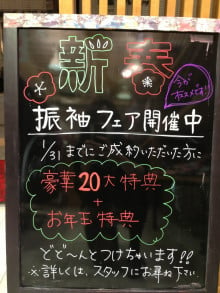 新春
今がオススメです!!
振袖フェア開催中
1/31までにご成約いただいた方に
豪華20大特典
+
お年玉特典
どど〜んとつけちゃいます!!
※詳しくは、スタッフにお尋ね下さい。